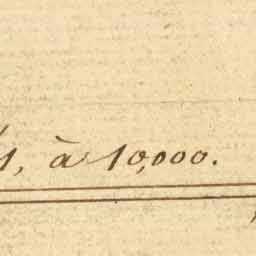 1, à 10,000.